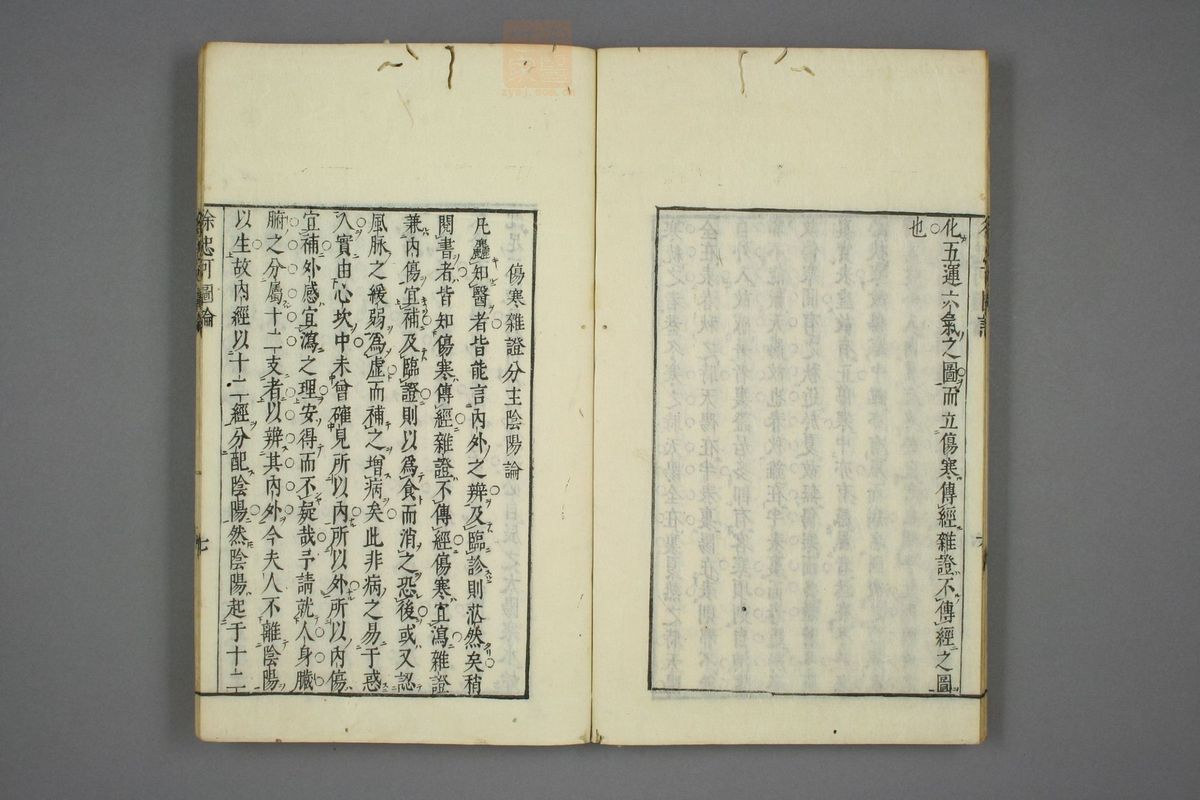 化五運六氣之圖而立傷寒傳經雜證不傳經之圖
也
傷寒雜證分主陰陽論
凡麤知醫者皆能言內外之辨及臨診則茫然矣稍
閱書者皆知傷寒傳經雜證不傳經傷寒宜瀉雜證
兼內傷宜補及臨證則以爲食而消之恐後或又認
風脉之緩弱爲虛而補之增病矣此非病之易于惑
入實由心坎中未曾確見所以內所以外所以內傷
宜補外感宜瀉之理安得而不疑哉予請就人身臟
腑之分屬十二支者以辨其內外今夫人不離陰陽
以生故內經以十二經分配陰陽然陰陽起于十二
徐忠可圖論
七